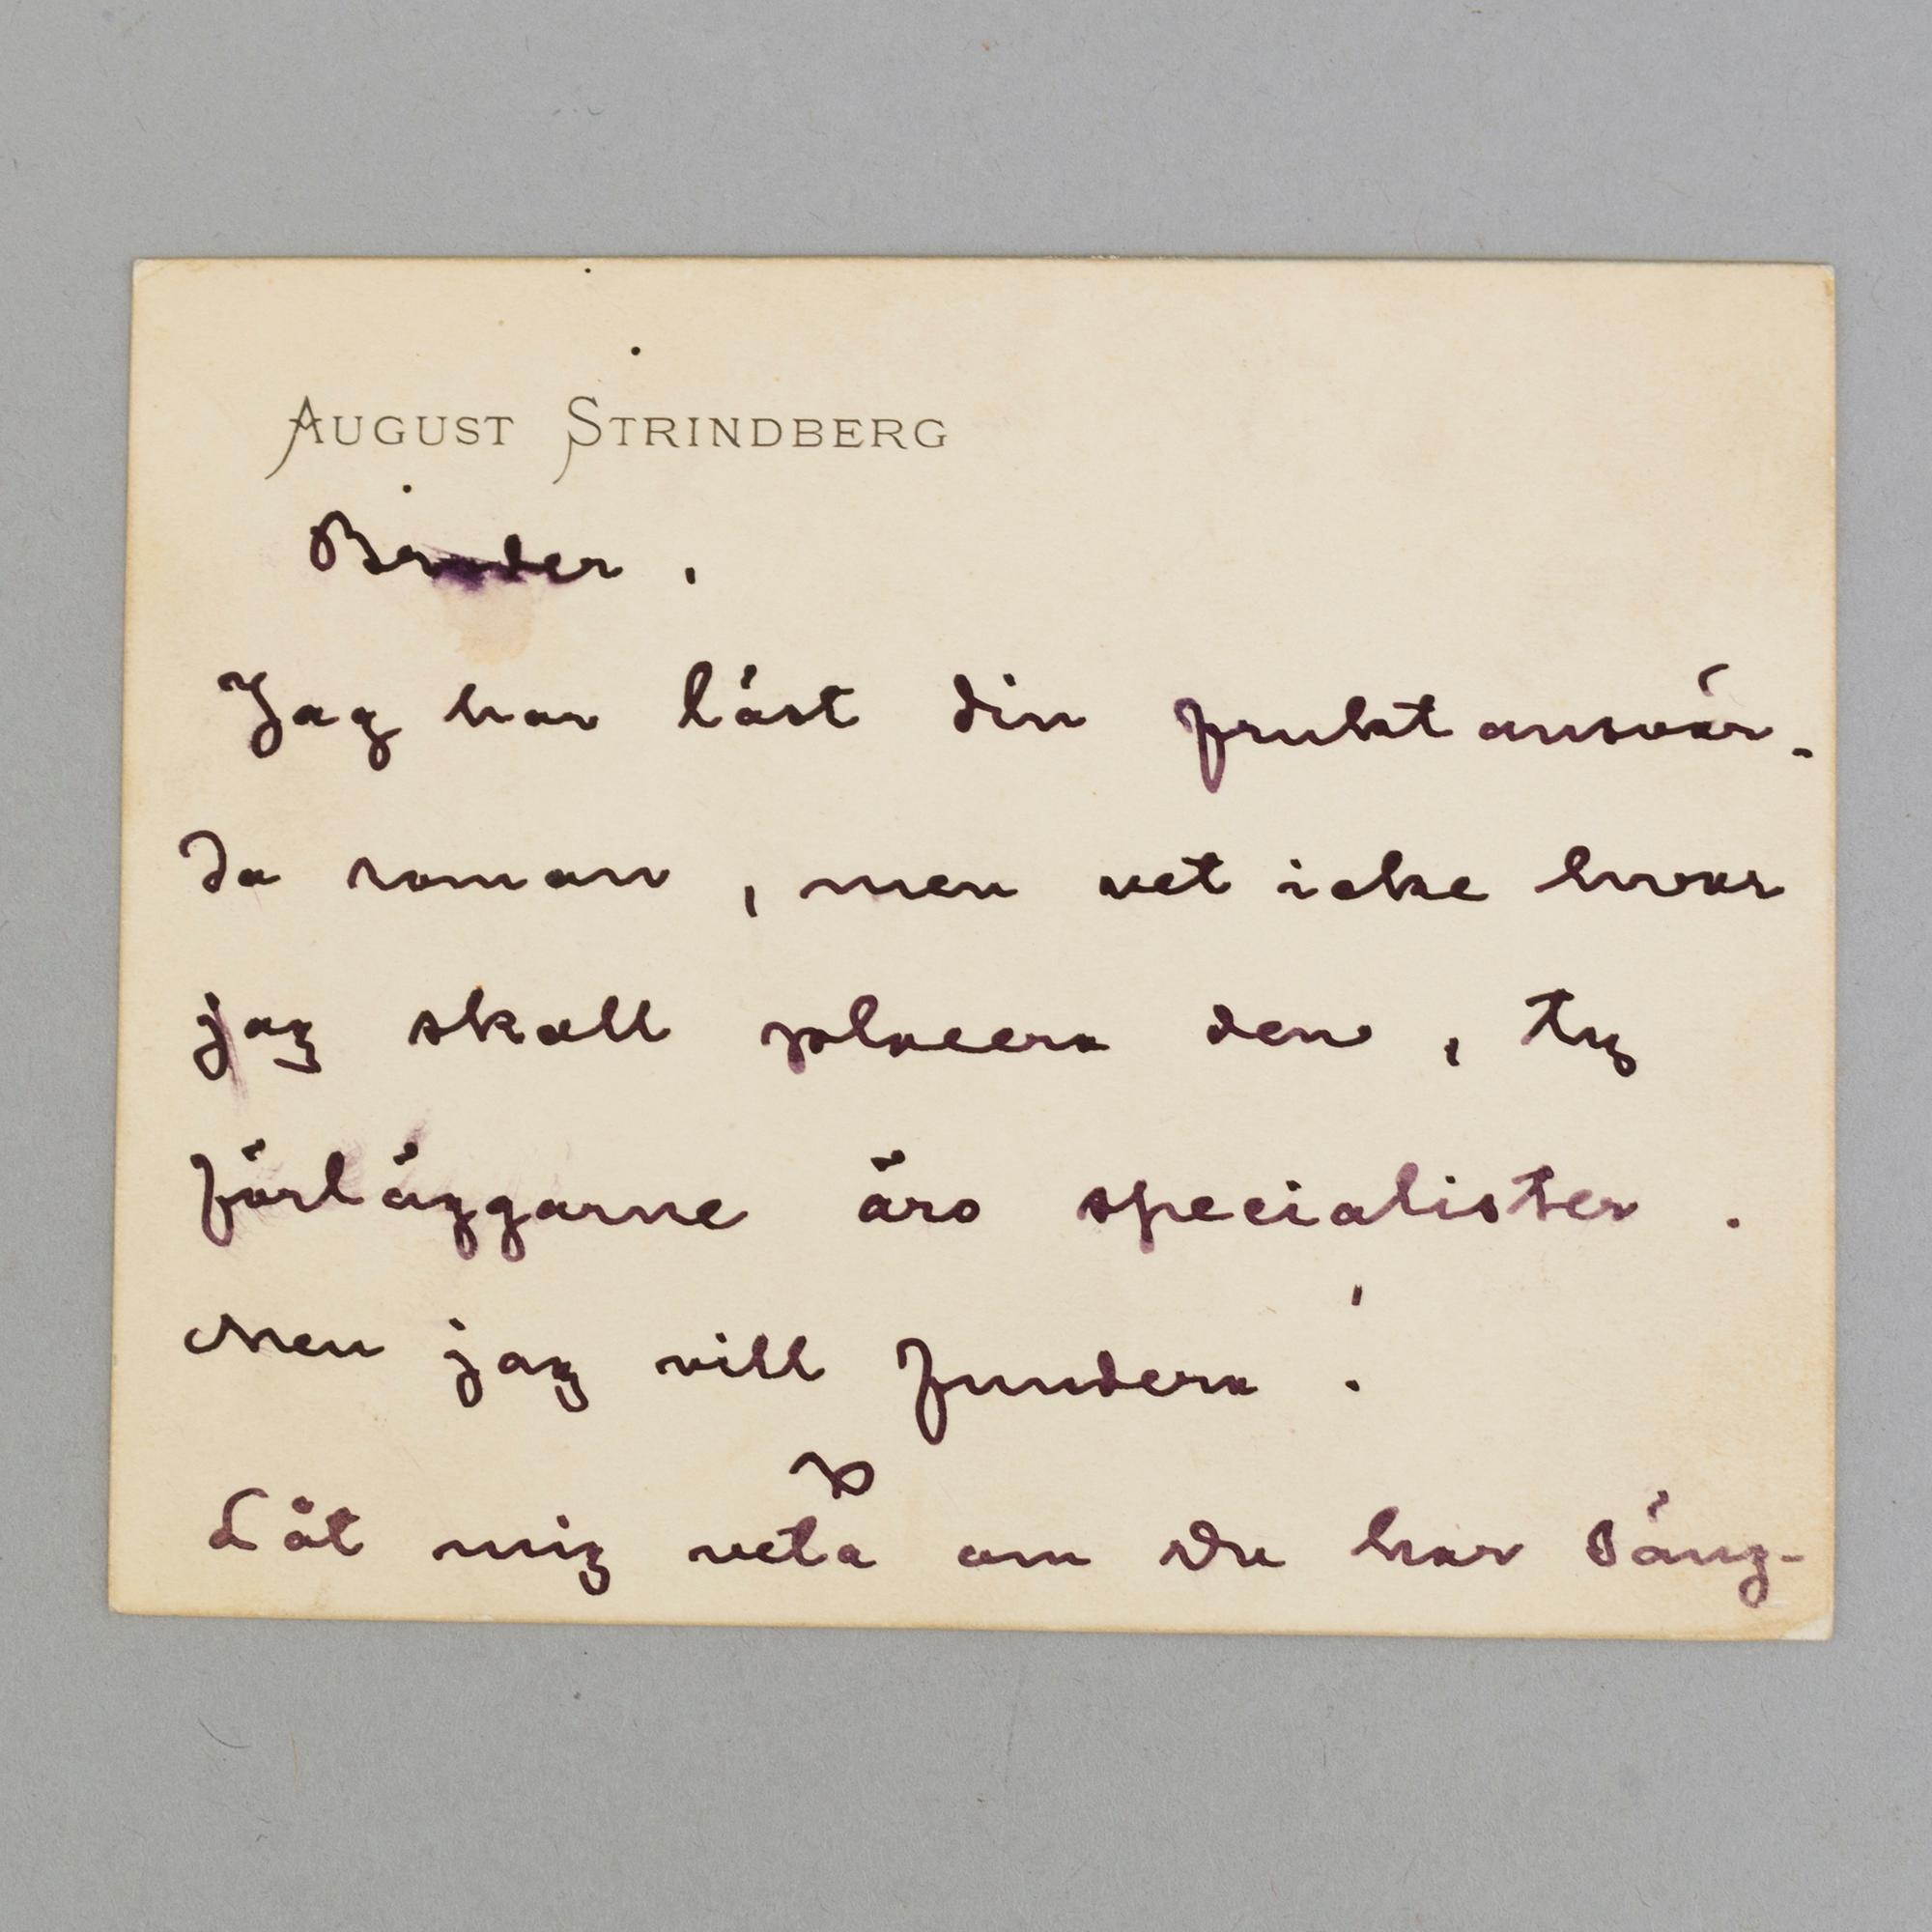 AUGUST STRINDBERG
Broder,
Jag har läst din fruktansvär-
da roman, men vet icke hvar
jag skall placera den, ty
förläggarne äro specialister.
Men jag vill fundera!
Låt mig veta om Du har säng-